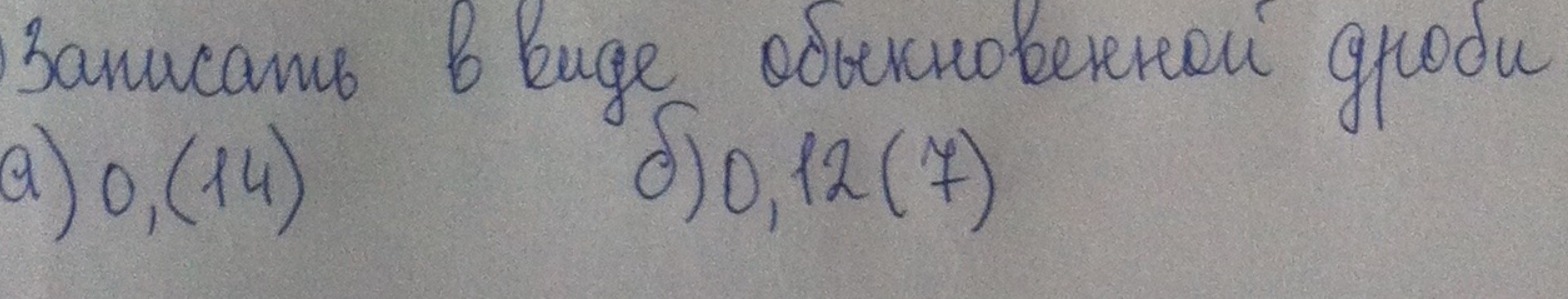 Записать в виде обыкновенной дроби
а) 0,(14) б) 0,12(7)